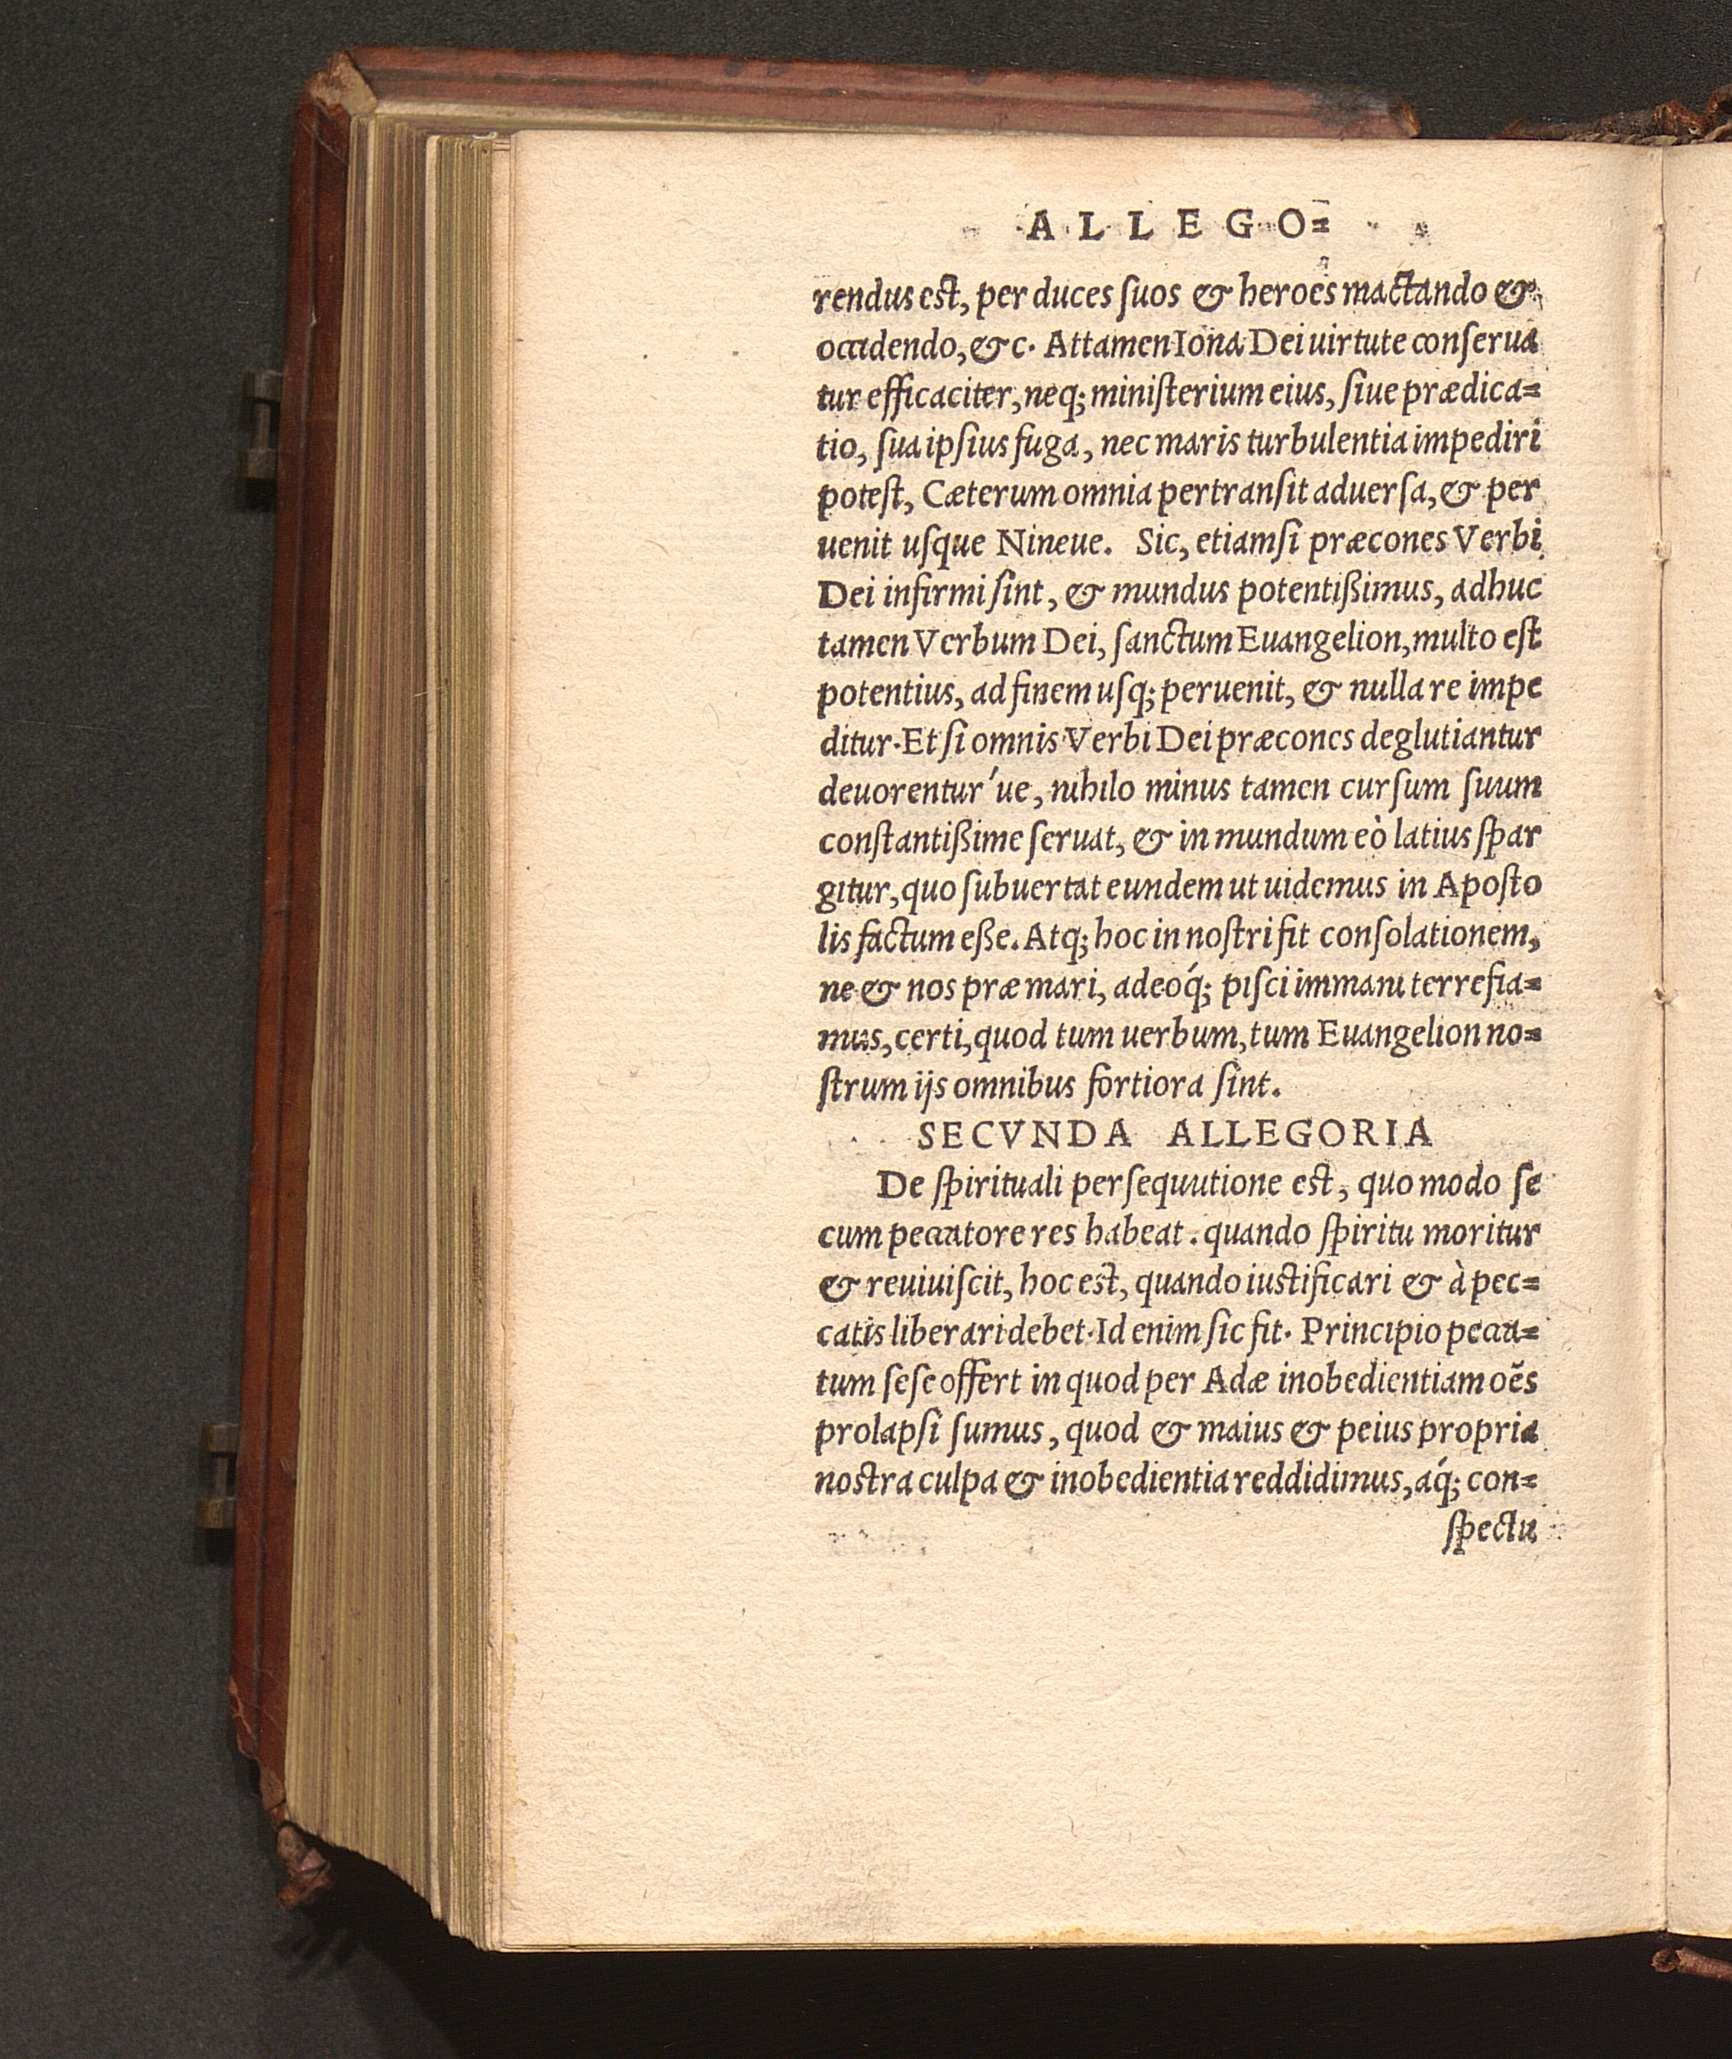 ALLEGO⸗
rendus eſt, per duces ſuos & heroes mactando &
occidendo, &c. Attamen Iona Dei uirtute conſerua
tur efficaciter, neq; miniſterium eius, ſiue prædica⸗
tio, ſua ipſius fuga, nec maris turbulentia impediri
poteſt, Cæterum omnia pertranſit aduerſa, & per
uenit uſque Nineue. Sic, etiamſi præcones Verbi
Dei infirmi ſint, & mundus potentißimus, adhuc
tamen Verbum Dei, ſanctum Euangelion, multo eſt
potentius, ad finem uſq; peruenit, & nulla re impe
ditur. Et ſi omnis Verbi Dei præcones deglutiantur
deuorentur´ue, nihilo minus tamen curſum ſuum
conſtantißime ſeruat, & in mundum eò latius ſpar
gitur, quo ſubuertat eundem ut uidemus in Apoſto
lis factum eße. Atq; hoc in noſtri fit conſolationem,
ne & nos præ mari, adeoq́; piſci immani terrefia⸗
mus, certi, quod tum uerbum, tum Euangelion no⸗
ſtrum ijs omnibus fortiora ſint.
SECVNDA ALLEGORIA
De ſpirituali perſequutione eſt, quo modo ſe
cum peccatore res habeat. quando ſpiritu moritur
& reuiuiſcit, hoc eſt, quando iuſtificari & à pec⸗
catis liberari debet. Id enim ſic fit. Principio pecca⸗
tum ſeſe offert in quod per Adæ inobedientiam oẽs
prolapſi ſumus, quod & maius & peius propria
noſtra culpa & inobedientia reddidimus, aq́; con⸗
ſpectu